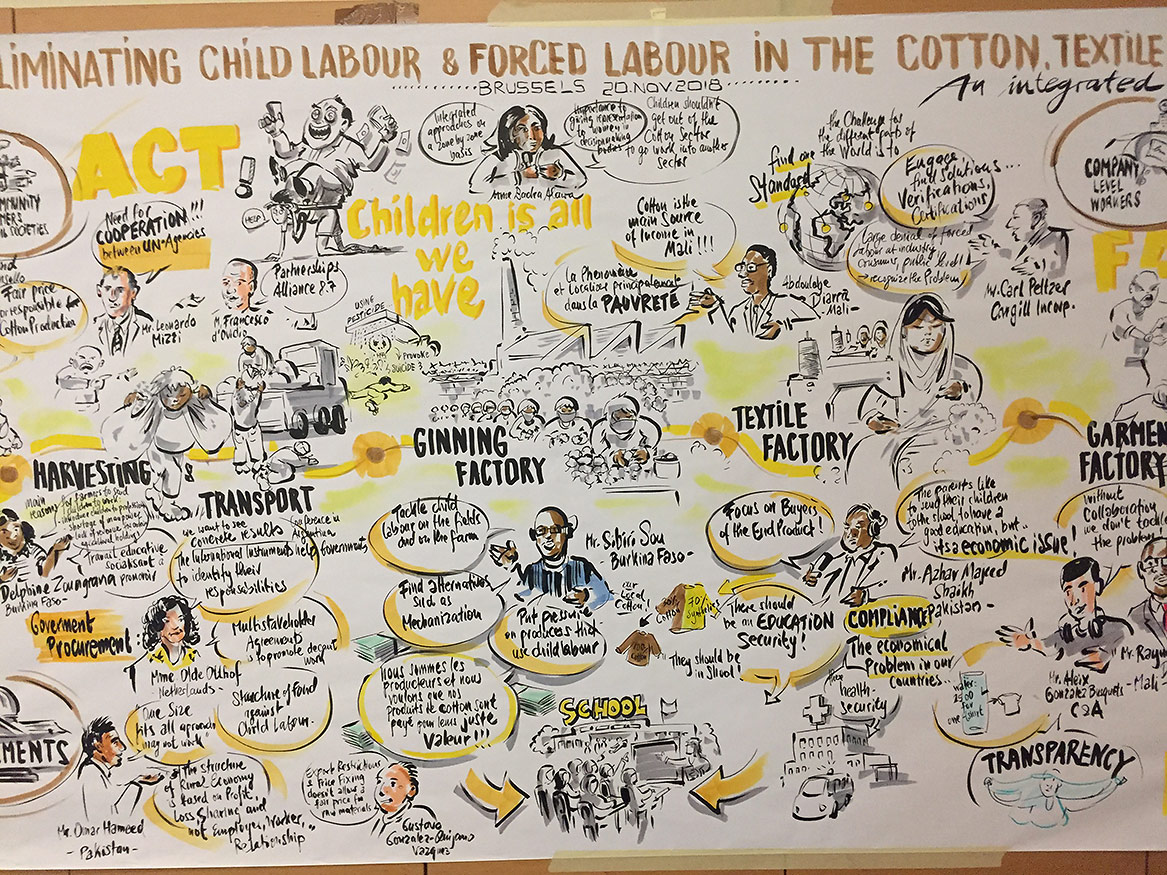 LIMINATING CHILD LABOUR & FORCED LABOUR IN THE COTTON, TEXTILE
BRUSSELS 20.NOV.2018
An integrated
ACT!
MMUNITY
SOCIETIES
Need for
COOPERATION!!!
between UN-Agencies
Mr. Leonardo
Mizzi
Fair price
Cotton Production
M. Francesco
d'Ovidio
Partnerships
Alliance 8.7
HELP
Integrated
approaches on
a zone by zone
basis
Importance to
giving representation
to women in
decisionmaking
bodies
Children shouldn't
get out of the
Cotton Sector
to go work into another
sector
Children is all
we
have
USING
PESTICIDE
PROVOKE
SUICIDE
Cotton is the
main source
of Income in
Mali!!!
La Phenomene
et Localise principalement
dans la PAUVRETÉ
Abdoulaye
Diarra
-Mali-
the Challenge for
the different parts of
the World is to
find one
Standard
Engage...
find solutions
Verifications,
Certifications
Large denial of forced
Labour at industry
consumer, public level!
recognize the Problem!
Mr. Carl Peltzer
Cargill Incorp.
COMPANY
LEVEL
WORKERS
FA
HARVESTING
TRANSPORT
GINNING
FACTORY
TEXTILE
FACTORY
GARMEN
FACTORY
main
reasons
for farmers to send
children to work
shortage of manpower
Travail educative
socialisant a
promouvoir
Delphine Zoungrana
Burkina Faso-
we want to see
concrete results
experience in
Argentina
The International Instruments help Governments
to identify their
responsibilities
Goverment
Procurement
Mme Olde Olthof
-Netherlands-
Multistakeholder
Agreements
to promote decent
work
Structure of Fond
against
Child Labour.
"One Size
fits all approach
may not work"
MENTS
Mr. Omar Hameed
-Pakistan-
The structure
of Rural Economy
is based on Profit
Loss Sharing and
not Employer, Worker,"
Relationship
Tackle child
labour on the fields
and on the farm
Find alternatives
such as
Mechanization
Mr. Sibiri Sou
-Burkina Faso-
Put pressure
on producers that
use child labour
our
Local
Cotton!
Cotton
70%
Synthetics
100%
Cotton
Nous sommes les
producteurs et nous
voulons que nos
produits de cotton sont
payé pour leurs juste
Valeur!!!
Export Restrictions
& Price Fixing
doesn't allow a
fair price for
raw materials
Gustavo
Gonzalez-Quijano
Vazquez
SCHOOL
Focus on Buyers
of the End Product!
There should
be an EDUCATION
Security!
They should be
in School!
The parents like
to send their children
to the school to have a
good education, but..
its a economic issue!
Mr. Azhar Majeed
Shaikh
-Pakistan-
COMPLIANCE!
The economical
Problem in our
Countries..
health-
security
without
Collaboration
we don't tackle
the problem
Mr. Aleix
Gonzalez Busquets
C&A
Mr. Raym
-Mali-
water:
2500
for
one t-shirt
TRANSPARENCY